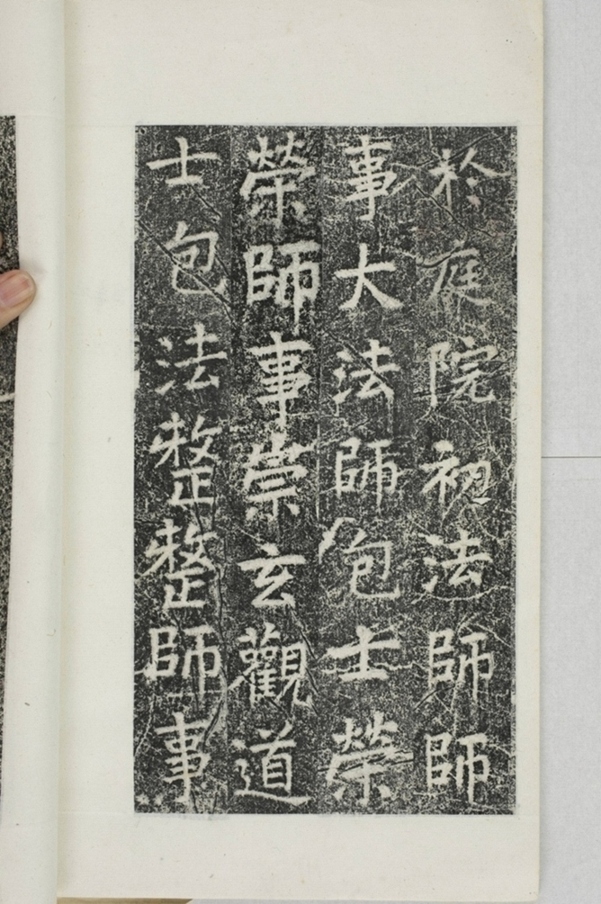 於庭院初法師師
事大法師包士榮
榮師事崇玄觀道
士包法整整師事